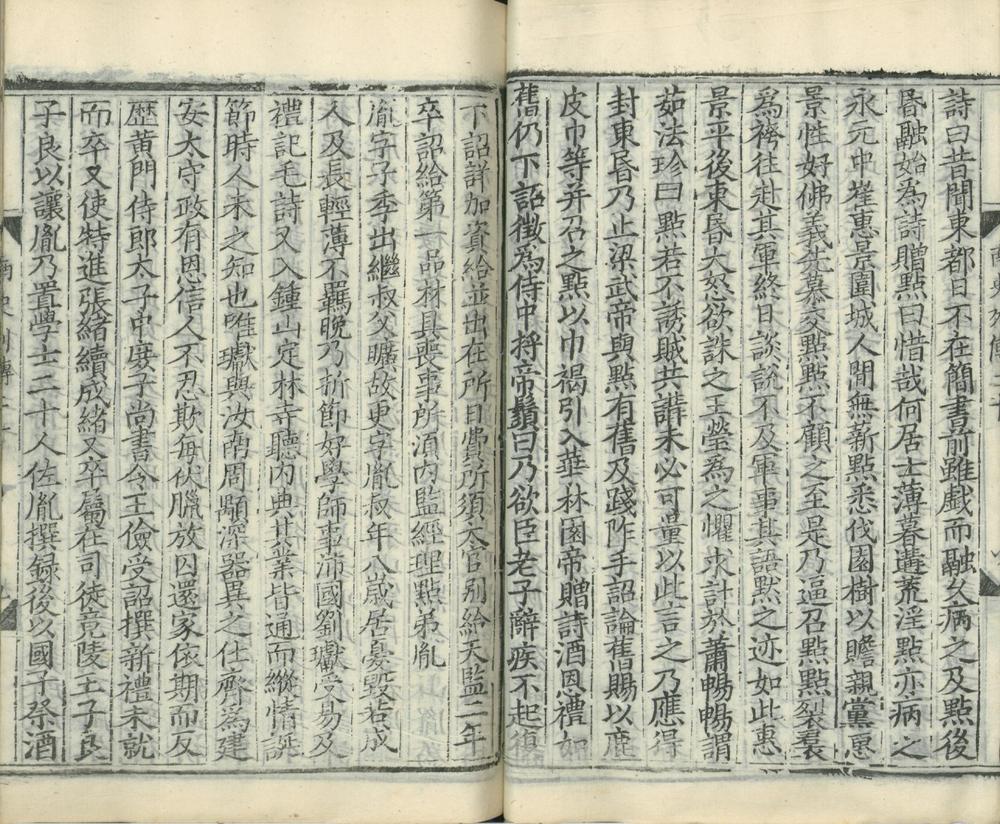 詩曰昔聞東都日不在簡書前雖戲而融久病之及點後
昏融始為詩贈點曰惜哉何居士薄暮遘荒淫點亦病之
永元中崔惠景圍城人間無薪點悉伐園樹以贍親黨惠
景性好佛義先慕交點點不顧之至是乃逼召點點裂裙
為袴往赴其軍終日談說不及軍事其語默之迹如此惠
景平後東昏大怒欲誅之王瑩為之懼求計於蕭暢暢謂
茹法珍曰點若不誘賊共講未必可量以此言之乃應得
封東昏乃止梁武帝與點有舊及踐阼手詔論舊賜以鹿
皮巾等并召之點以巾褐引入華林園帝贈詩酒恩禮如
舊仍下詔徵為侍中捋帝鬚曰乃欲臣老子辭疾不起復
下詔詳加資給並出在所日費所須太官別給天監二年
卒詔給第一品材具喪事所須內監經理點弟胤
胤字子季出繼叔父曠故更字胤叔年八歲居憂毀若成
人及長輕薄不羈晚乃折節好學師事沛國劉瓛受易及
禮記毛詩又入鍾山定林寺聽內典其業皆通而縱情誕
節時人未之知也唯瓛與汝南周顒深器異之仕齊為建
安太守政有恩信人不忍欺每伏臘放囚還家依期而反
歷黃門侍郎太子中庶子尚書令王儉受詔撰新禮未就
而卒又使特進張緒續成緒又卒屬在司徒竟陵王子良
子良以讓胤乃置學士二十人佐胤撰錄後以國子祭酒